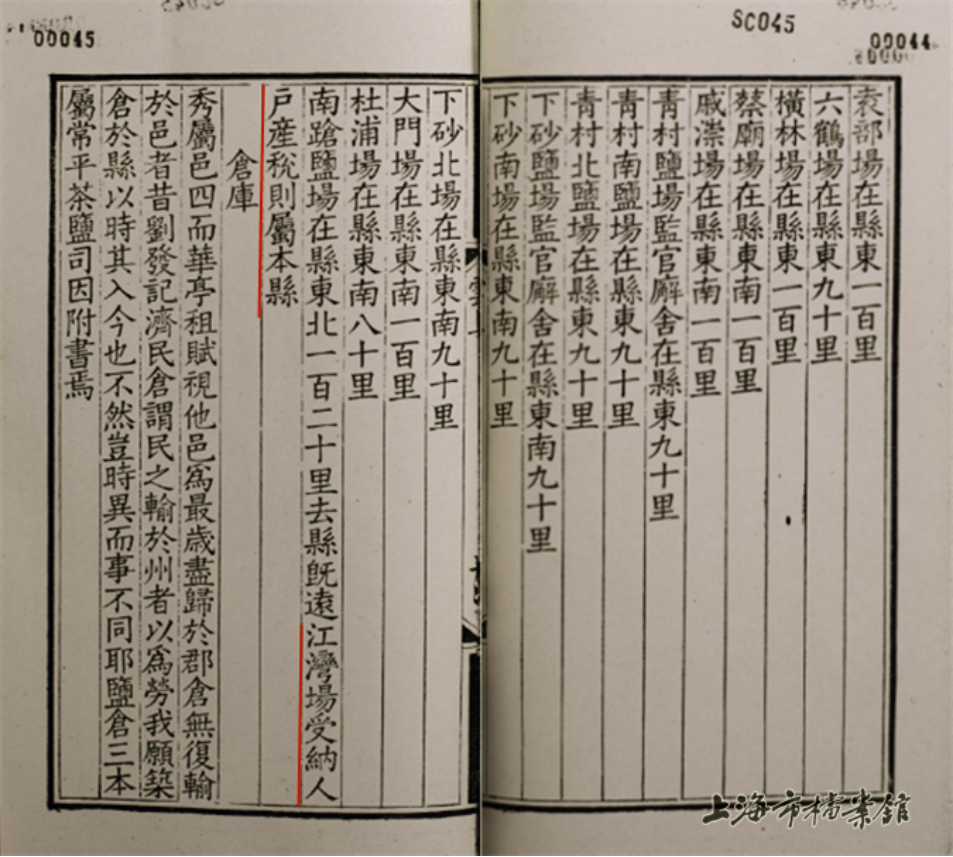 SC045
00044
00045
袁部場在縣東一百里
六鶴場在縣東九十里
橫林場在縣東一百里
蔡廟場在縣東南一百里
戚漴場在縣東南一百里
青村鹽場監官廨舍在縣東九十里
青村南鹽場在縣東九十里
青村北鹽場在縣東九十里
下砂鹽場監官廨舍在縣東南九十里
下砂南場在縣東南九十里
下砂北場在縣東南九十里
大門場在縣東南一百里
杜浦場在縣東南八十里
南蹌鹽場在縣東北一百二十里去縣既遠江灣場受納人
戸產稅則屬本縣
倉庫
秀屬邑四而華亭租賦視他邑爲最歲盡歸於郡倉無復輸
於邑者昔劉發記濟民倉謂民之輸於州者以爲勞我願築
倉於縣以時其入今也不然豈時異而事不同耶鹽倉三本
屬常平茶鹽司因附書焉
上海市檔案館